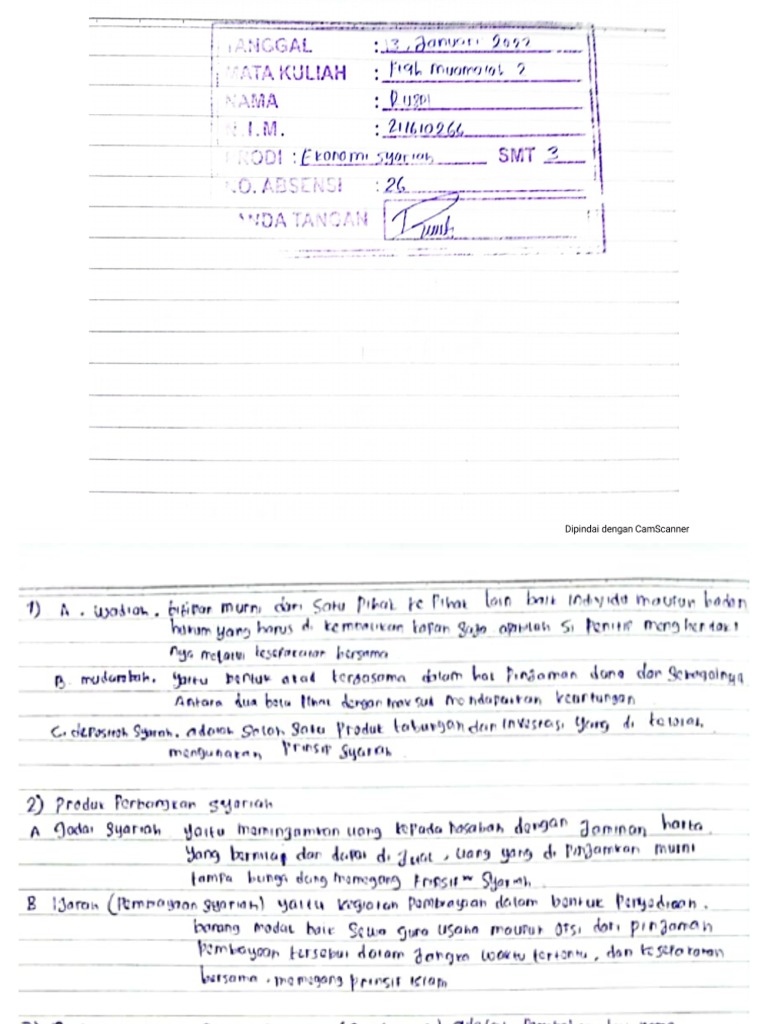 TANGGAL : 13, Januari 2022
MATA KULIAH : Fiqh muamalah 2
NAMA :
N.I.M. : 211610266
PRODI : Ekonomi syariah SMT 3
NO. ABSENSI : 26
TANDA TANGAN
Dipindai dengan CamScanner
1) A. wadiah. titipan murni dari satu pihak ke pihak lain baik individu maupun badan
hukum yang harus di kembalikan kapan saja apabilah si penitip menghendaki
nya melalui kesepakatan bersama
B. mudarabah. yaitu bentuk akad kerjasama dalam hal pinjaman dana dan sebagainya
Antara dua belu pihak dengan maksud mendapatkan keuntungan
C. depositoh Syariah. adalah salah satu Produk tabungan dan investasi yang di kelolah
mengunakan Prinsip Syariah
2) Produk Perbangkan syariah
A Gadai Syariah yaitu meminjamkan uang kepada nasabah dengan Jaminan harta
yang bernilai dan dapat di Jual, uang yang di pinjamkan murni
tampa bunga dang memegang Prinsip Syariah
B Ijarah (Pembiayaan Syariah) yaitu kegiatan Pembiayaan dalam bentuk Penyediaan
barang modal baik sewa guna usaha maupun opsi dari pinjaman
Pembayaan tersebut dalam Jangka waktu tertentu, dan kesepakatan
bersama. memegang prinsip islam